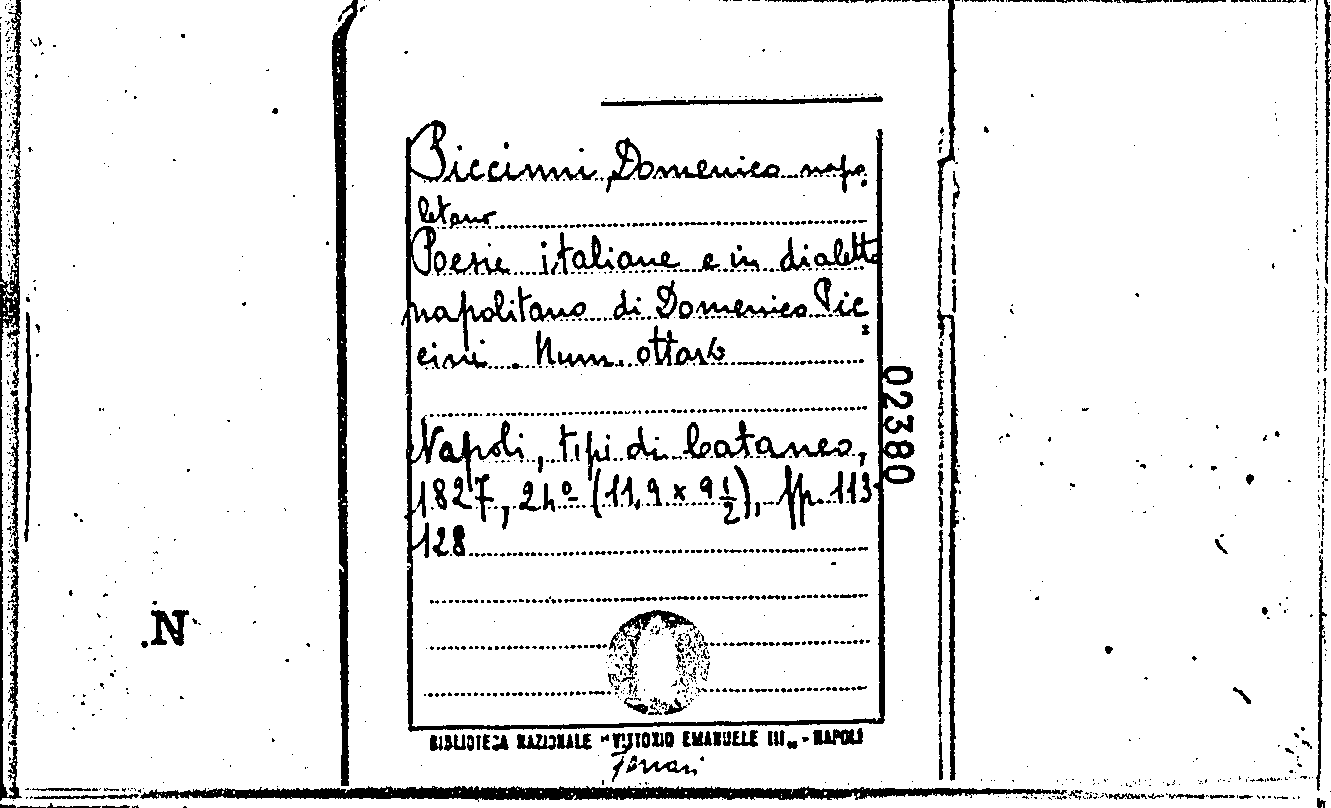 Piccinni, Domenico napo
letano
Poesie italiane e in dialetto
napolitano di Domenico Pic
cini. Num. ottavo
Napoli, tipi di Cataneo,
1827, 24º (11,9 x 9 1/2), pp. 113-
128
02380
.N
BIBLIOTECA NAZIONALE "VITTORIO EMANUELE III„ - NAPOLI
Ferrari